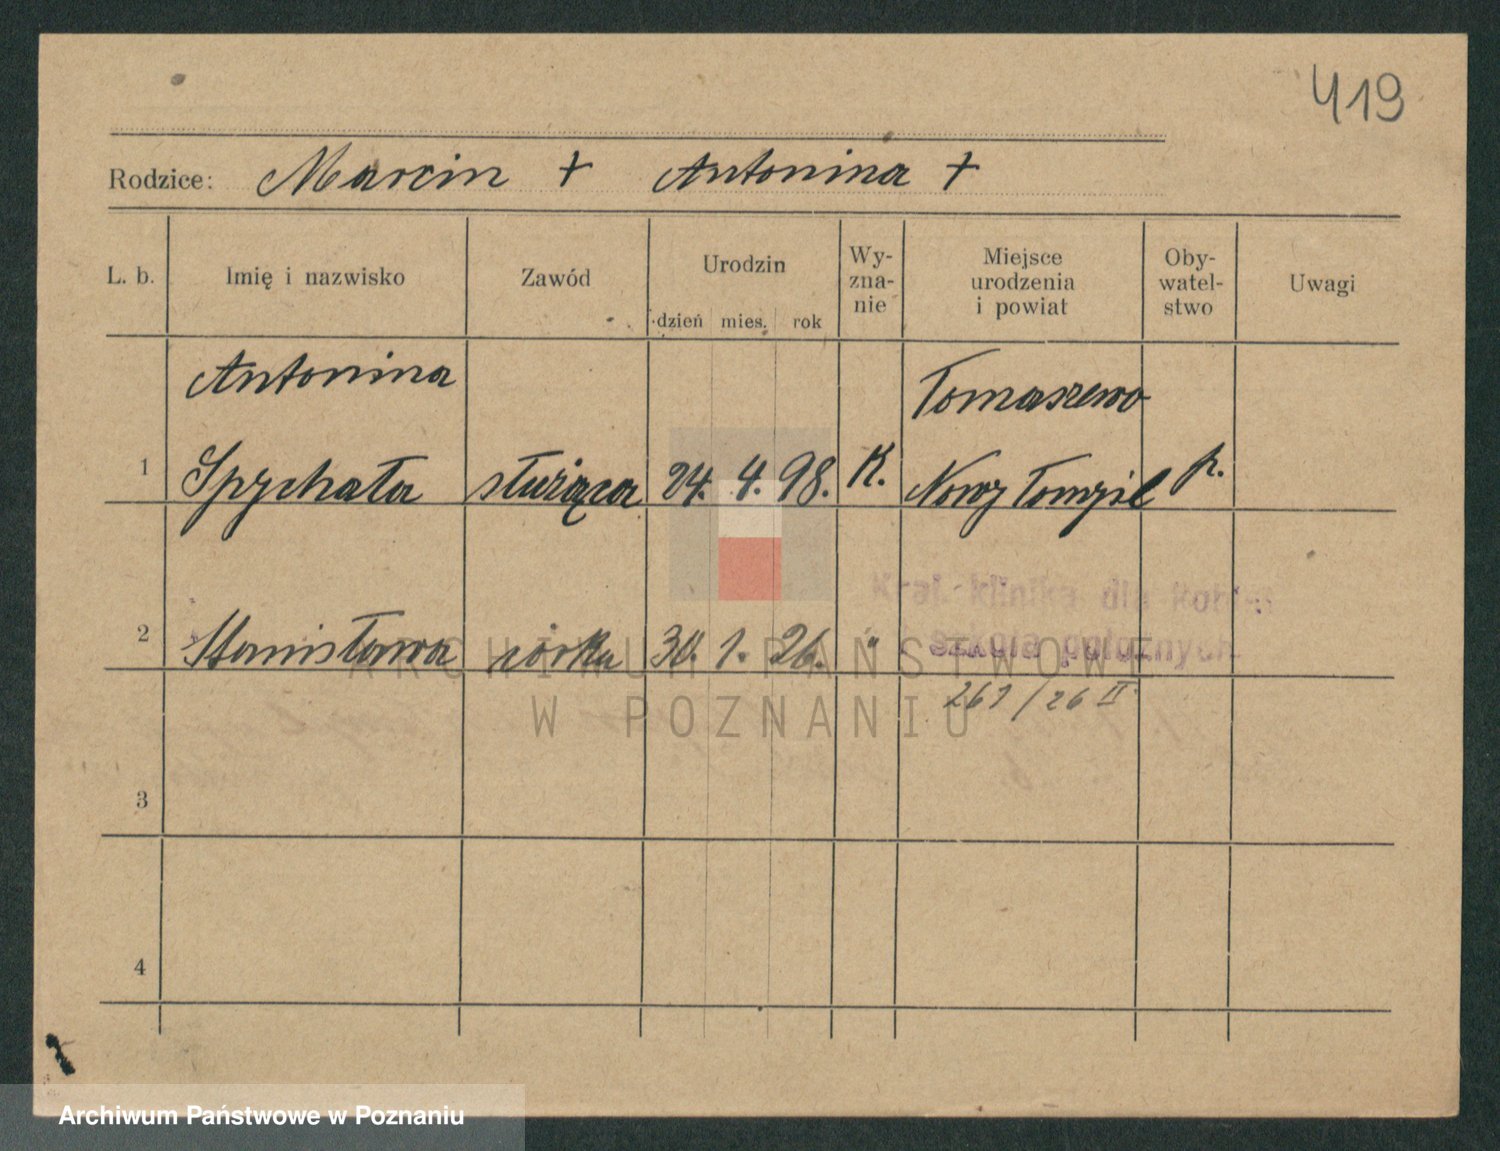 419
Rodzice: Marcin + Antonina +
L. b. Imię i nazwisko Zawód Urodzin dzień mies. rok Wy-zna-nie Miejsce urodzenia i powiat Oby-watel-stwo Uwagi
Antonina Tomaszewo
1 Spychała służąca 24. 4. 98. K. Nowy Tomyśl p.
Kral. klinika dla kobiet
2 Stanisława córka 30. 1. 26. " szkoła położnych
261/26 II
3
4
ARCHIWUM PAŃSTWOWE
W POZNANIU
Archiwum Państwowe w Poznaniu